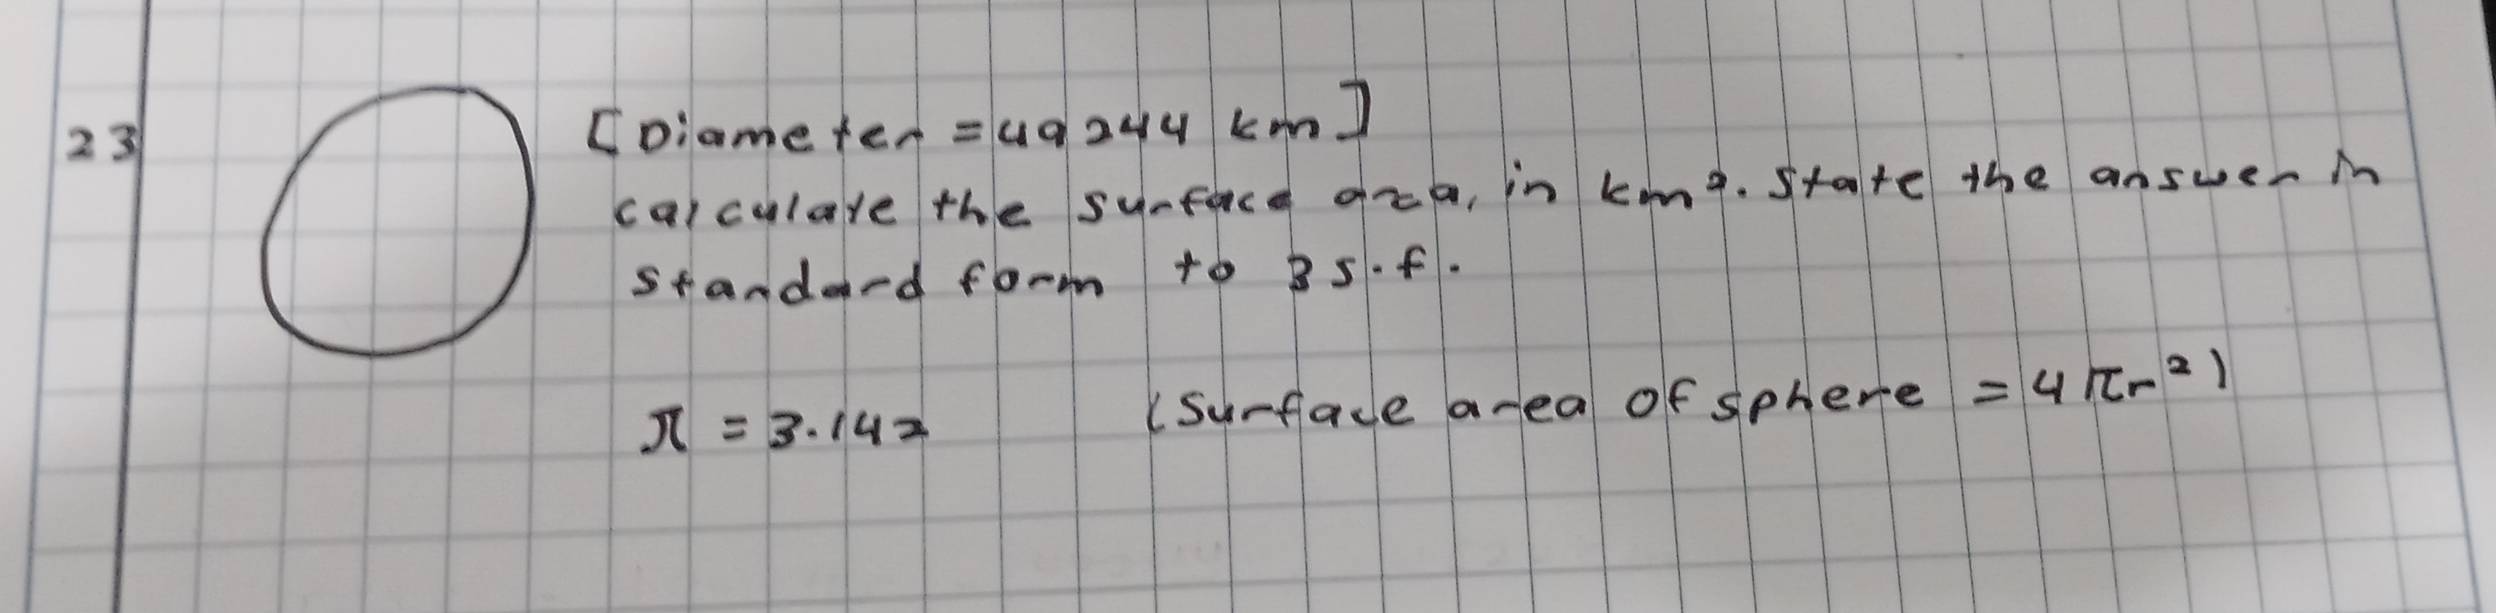 23
[Diameter = 49244 km]
calculate the surface area, in km². State the answer in
standard form to 3 s.f.
π = 3.142 (Surface area of sphere = 4πr²)